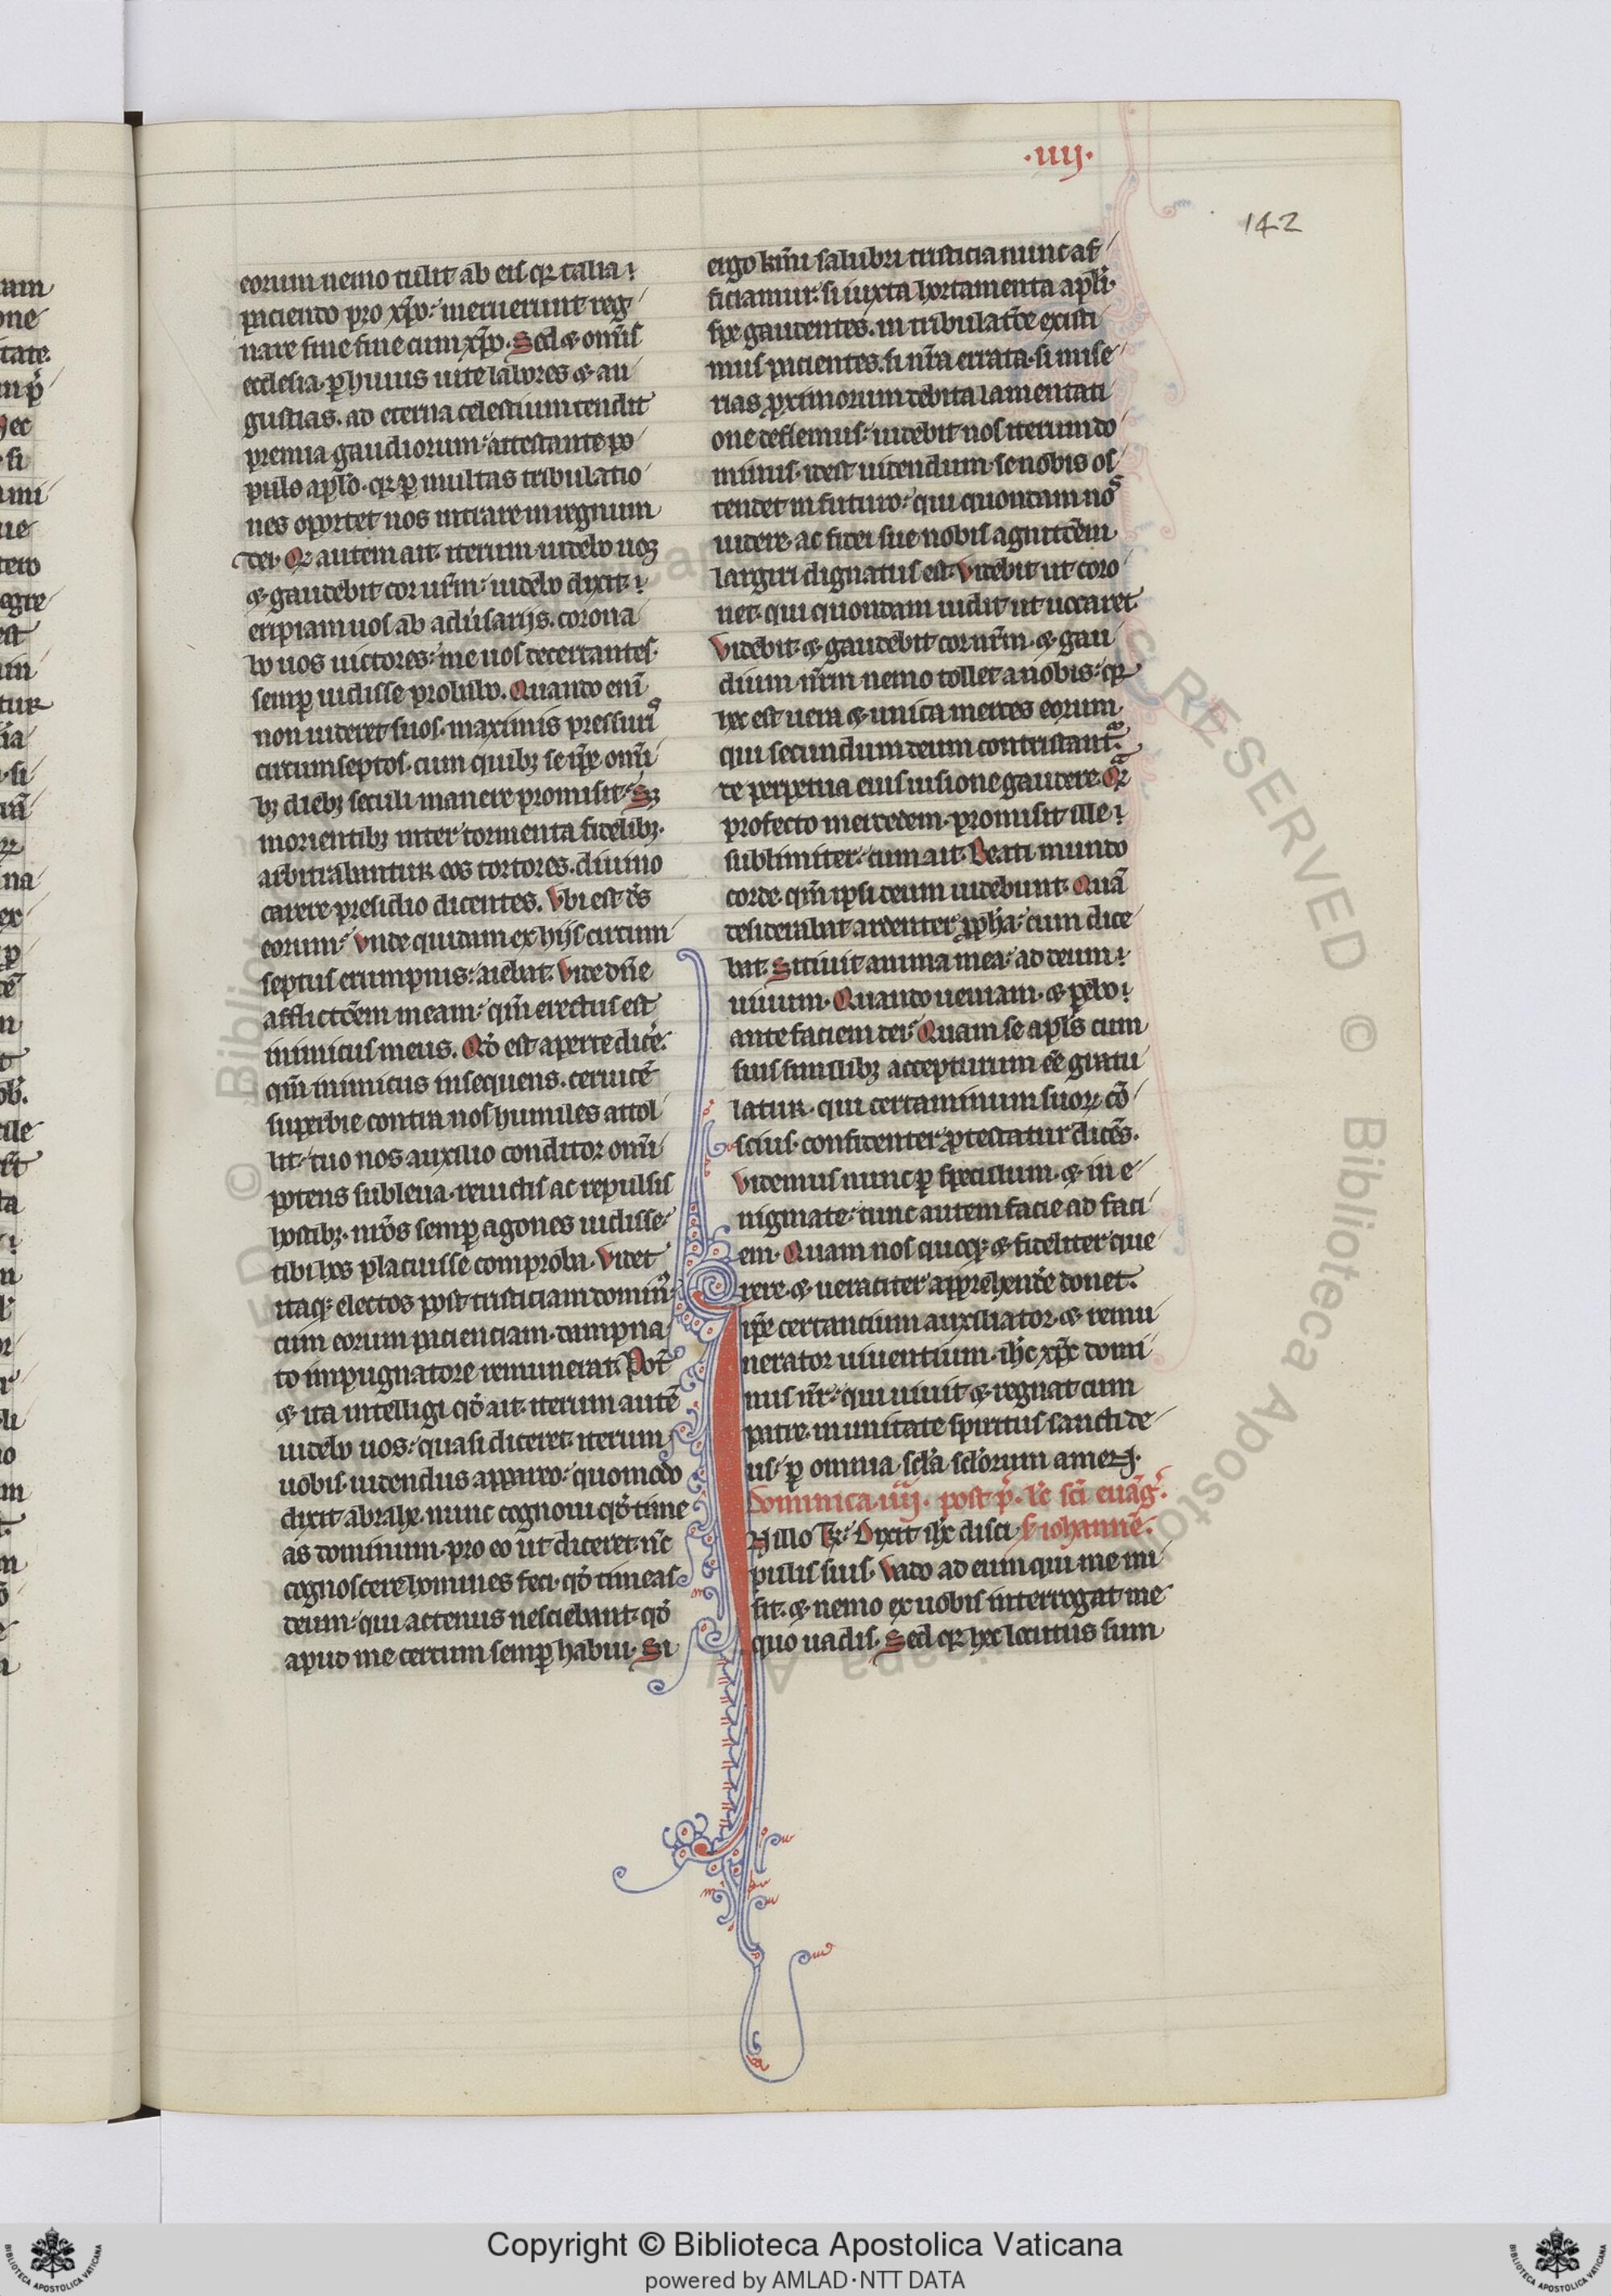 ·iiij·
142
eorum nemo tulit ab eis qr talia
paciendo pro xp̄o: meruerunt reg
nare sine fine cum xp̄o. Sed & om̄is
ecclesia ꝑ huius uite labores & an
gustias. ad eterna celestium tendit
premia gaudiorum: attestante po
pulo apl̄o. qr ꝑ multas tribulatio
nes oportet nos intrare in regnum
dei. Qd̄ autem ait iterum uidebo uoꝫ
& gaudebit cor ur̄m: uidebo dixit
eripiam uos ab aduersarijs. corona
bo uos uictores: me uos decertantes
semꝑ uidisse probabo. Quando eni̅
non uideret suos. maximis pressuris
circumseptos. cum quibꝫ se ip̄e om̄i
bꝫ diebꝫ seculi manere promisit: Sꝫ
morientibꝫ inter tormenta fidelibꝫ.
arbitrabantur eos tortores. diuino
carere presidio dicentes. Vbi est d̄s
eorum: Vnde quidam ex hijs circum
septus erumpnis: aiebat. Vide dn̄e
afflictōem meam: qm̄ erectus est
inimicus meus. Qd̄ est aperte dicere:
qm̄ inimicus insequens. ceruice̅
superbie contra nos humiles attol
lit: tuo nos auxilio conditor om̄i
potens subleua. reuictis ac repulsis
hostibꝫ. nr̄os semꝑ agones uidisse
tibi hos placuisse comproba. Videt
itaqꝫ electos post tristiciam domin̄
cum eorum pacienciam. dampna
to impugnatore remunerat. Pōt
& ita intelligi qd̄ ait. iterum aute̅
uidebo uos: quasi diceret iterum
uobis. uidendus appareo: quomodo
dixit abrahe. nunc cognoui qd̄ time
as dominum. pro eo ut diceret. nc̄
cognoscere homines feci. qd̄ timeas
deum: qui actenus nesciebant. qd̄
apud me certum semꝑ habui. Si
ergo km̄i salubri tristicia nunc af
ficiamur: si iuxta hortamenta apl̄i.
spe gaudentes. in tribulatōe existi
mus pacientes. si nr̄a errata. si mise
rias proximorum debita lamentati
one deflemus: uidebit nos iterum do
minus. idest uidendum. se nobis os
tendet in futuro: qui quondam nos
uidere. ac fidei sue nobis agnitōem
largiri dignatus est. Videbit ut coro
net. qui quondam uidit ut uocaret
Videbit. & gaudebit cor nr̄m. & gau
dium nr̄m nemo tollet a nobis: qr
hec est uera & unica merces eorum
qui secundum deum contristantur:
de perpetua eius uisione gaudere. Qm̄
profecto mercedem. promisit ille
sublimiter: cum ait. Beati mundo
corde. qm̄ ipsi deum uidebunt. Qua̅
desiderabat ardenter ꝓph̄a: cum dice
bat. Sitiuit anima mea: ad deum
uiuum. Quando ueniam. & parebo
ante faciem dei: Quam se apl̄s cum
suis similibꝫ accepturum ee̅ gratu
latur. qui certaminum suoꝝ co̅
scius. confidenter ꝓtestatur dice̅s.
Videmus nunc ꝑ speculum. & in e
nigmate: tunc autem facie ad faci
em. Quam nos quoqꝫ & fideliter que
rere. & ueraciter apprehende̅ donet.
ip̄e certancium auxiliator. & remu
nerator uiuentium. ih̄c xp̄c domi
nus nr̄: qui uiuit & regnat cum
patre. in unitate spiritus sancti de
us: ꝑ omnia. scl̄a scl̄orum amen.
Dominica .iiij. post p̄. lc̄ sci̅ eua̅g̅.
IN illo t̄r: Dixit ih̄c disci s̄ iohanne̅.
pulis suis. Vado ad eum qui me mi
sit: & nemo ex uobis interrogat me
quo uadis. Sed qr hec locutus sum
Copyright © Biblioteca Apostolica Vaticana
powered by AMLAD·NTT DATA